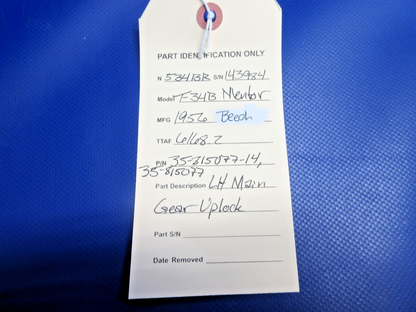 PART IDENTIFICATION ONLY
N 534BB S/N 143984
Model T-34B Mentor
MFG 1956 Beech
TTAF 6168.2
P/N 35-815077-14,
35-815077
Part Description LH Main
Gear Uplock
Part S/N
Date Removed